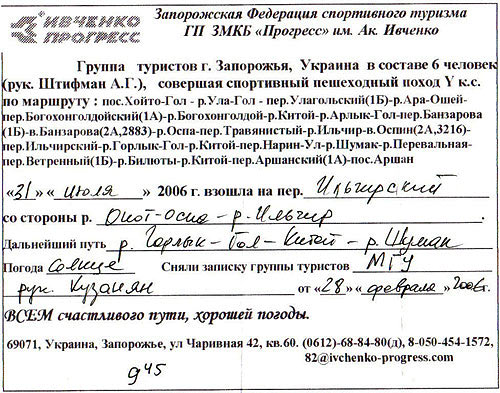 ИВЧЕНКО
ПРОГРЕСС
Запорожская Федерация спортивного туризма
ГП ЗМКБ «Прогресс» им. Ак. Ивченко
Группа туристов г. Запорожья, Украина в составе 6 человек
(рук. Штифман А.Г.), совершая спортивный пешеходный поход Y к.с.
по маршруту : пос.Хойто-Гол - р.Ула-Гол - пер.Улагольский(1Б)-р.Ара-Ошей-
пер.Богохонголдойский(1А)-р.Богохонголдой-р.Китой-р.Арлык-Гол-пер.Банзарова
(1Б)-в.Банзарова(2А,2883)-р.Оспа-пер.Травянистый-р.Ильчир-в.Оспин(2А,3216)-
пер.Ильчирский-р.Горлык-Гол-р.Китой-пер.Нарин-Ул-р.Шумак-р.Перевальная-
пер.Ветренный(1Б)-р.Билюты-р.Китой-пер.Аршанский(1А)-пос.Аршан
«31» «июля» 2006 г. взошла на пер. Ильчирский
со стороны р. Оспа-р.Ильчир.
Дальнейший путь р. Горлык-Гол-Китой-р.Шумак
Погода солнце Сняли записку группы туристов МГУ
рук. Кузанян от «28» «февраля» 2006г.
ВСЕМ счастливого пути, хорошей погоды.
69071, Украина, Запорожье, ул Чаривная 42, кв.60. (0612)-68-84-80(д), 8-050-454-1572,
82@ivchenko-progress.com
9 45